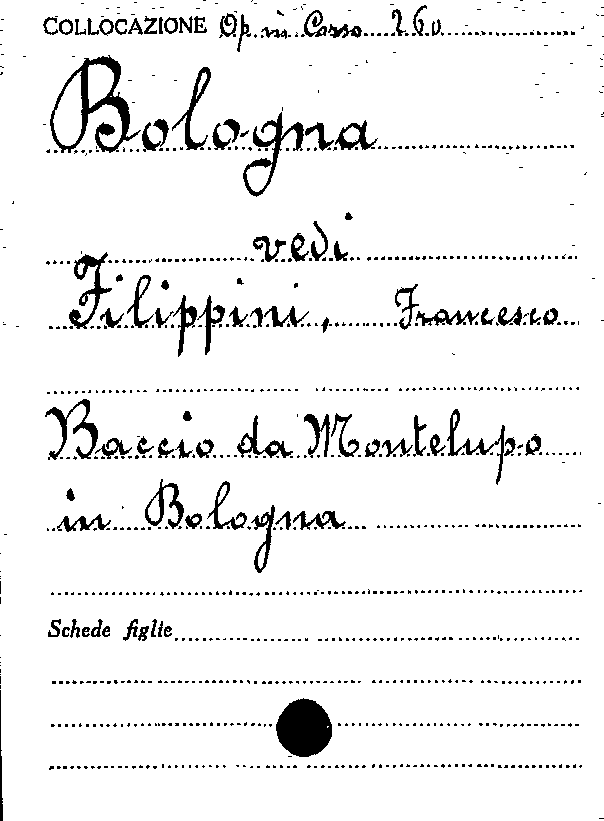 COLLOCAZIONE Op. in Corso 260
Bologna
vedi
Filippini, Francesco
Baccio da Montelupo
in Bologna
Schede figlie